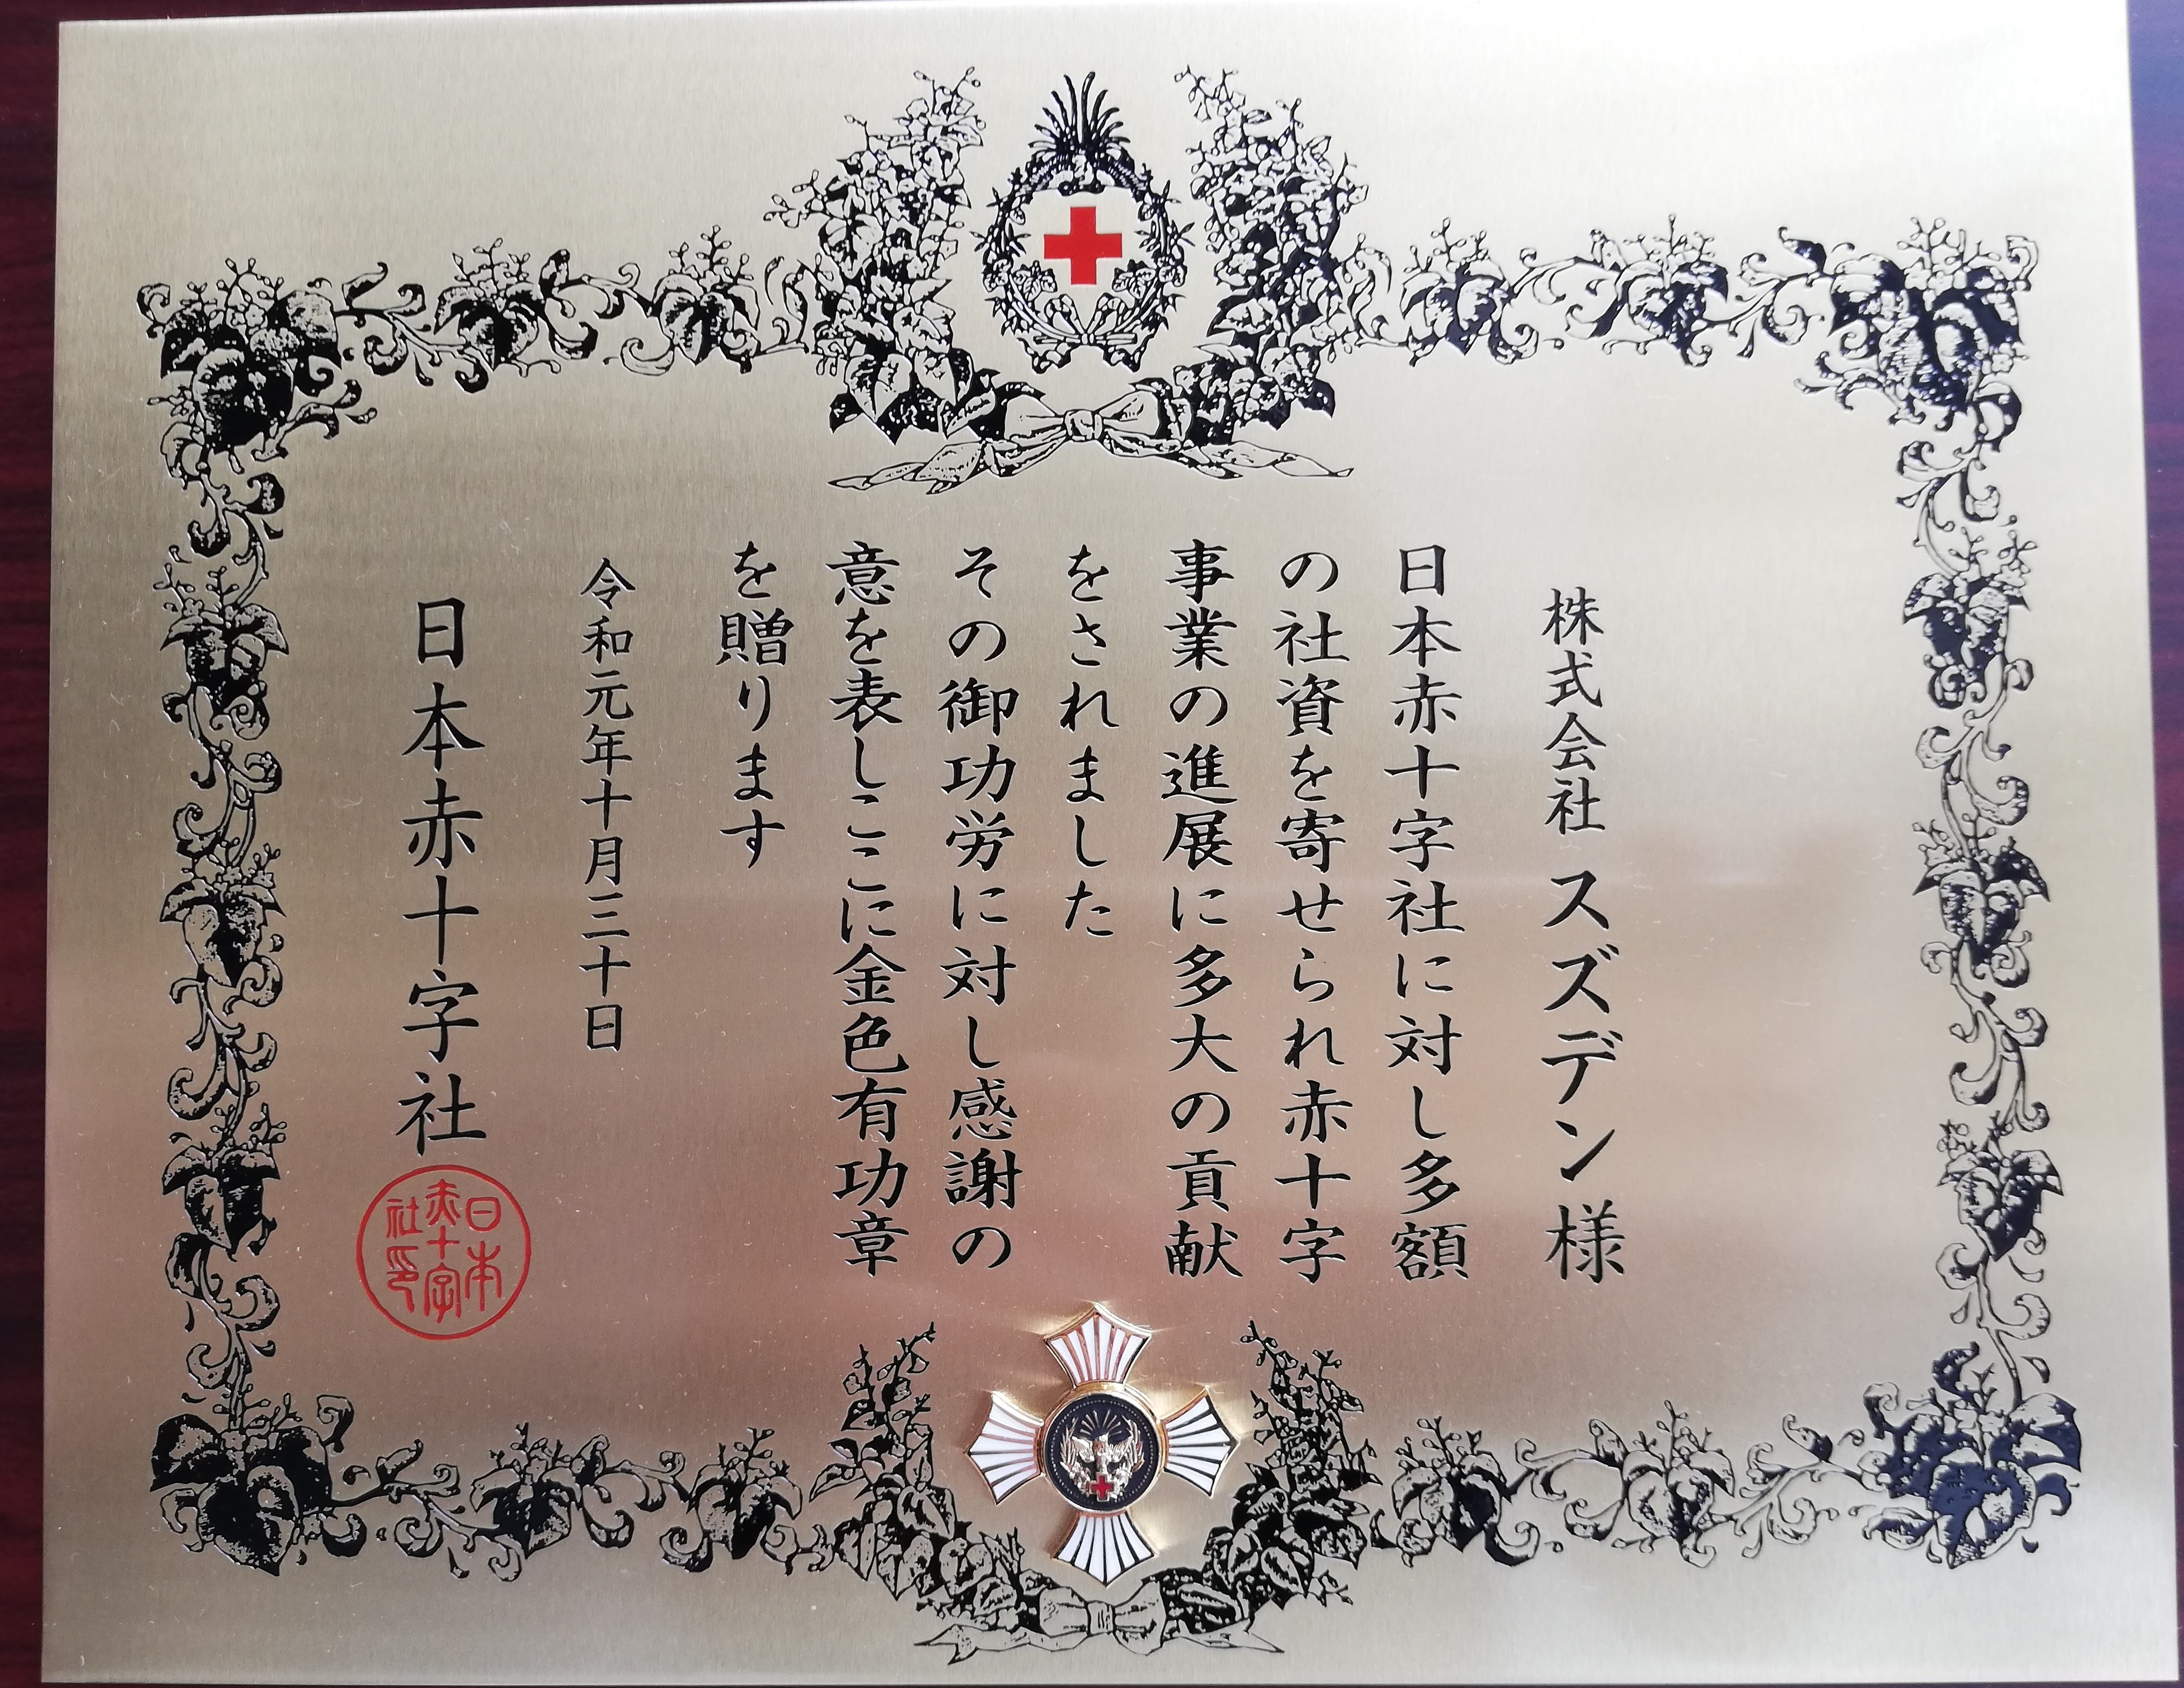 株式会社 スズデン 様
日本赤十字社に対し多額
の社資を寄せられ赤十字
事業の進展に多大の貢献
をされました
その御功労に対し感謝の
意を表しここに金色有功章
を贈ります
令和元年十月三十日
日本赤十字社
日本
赤十字
社印